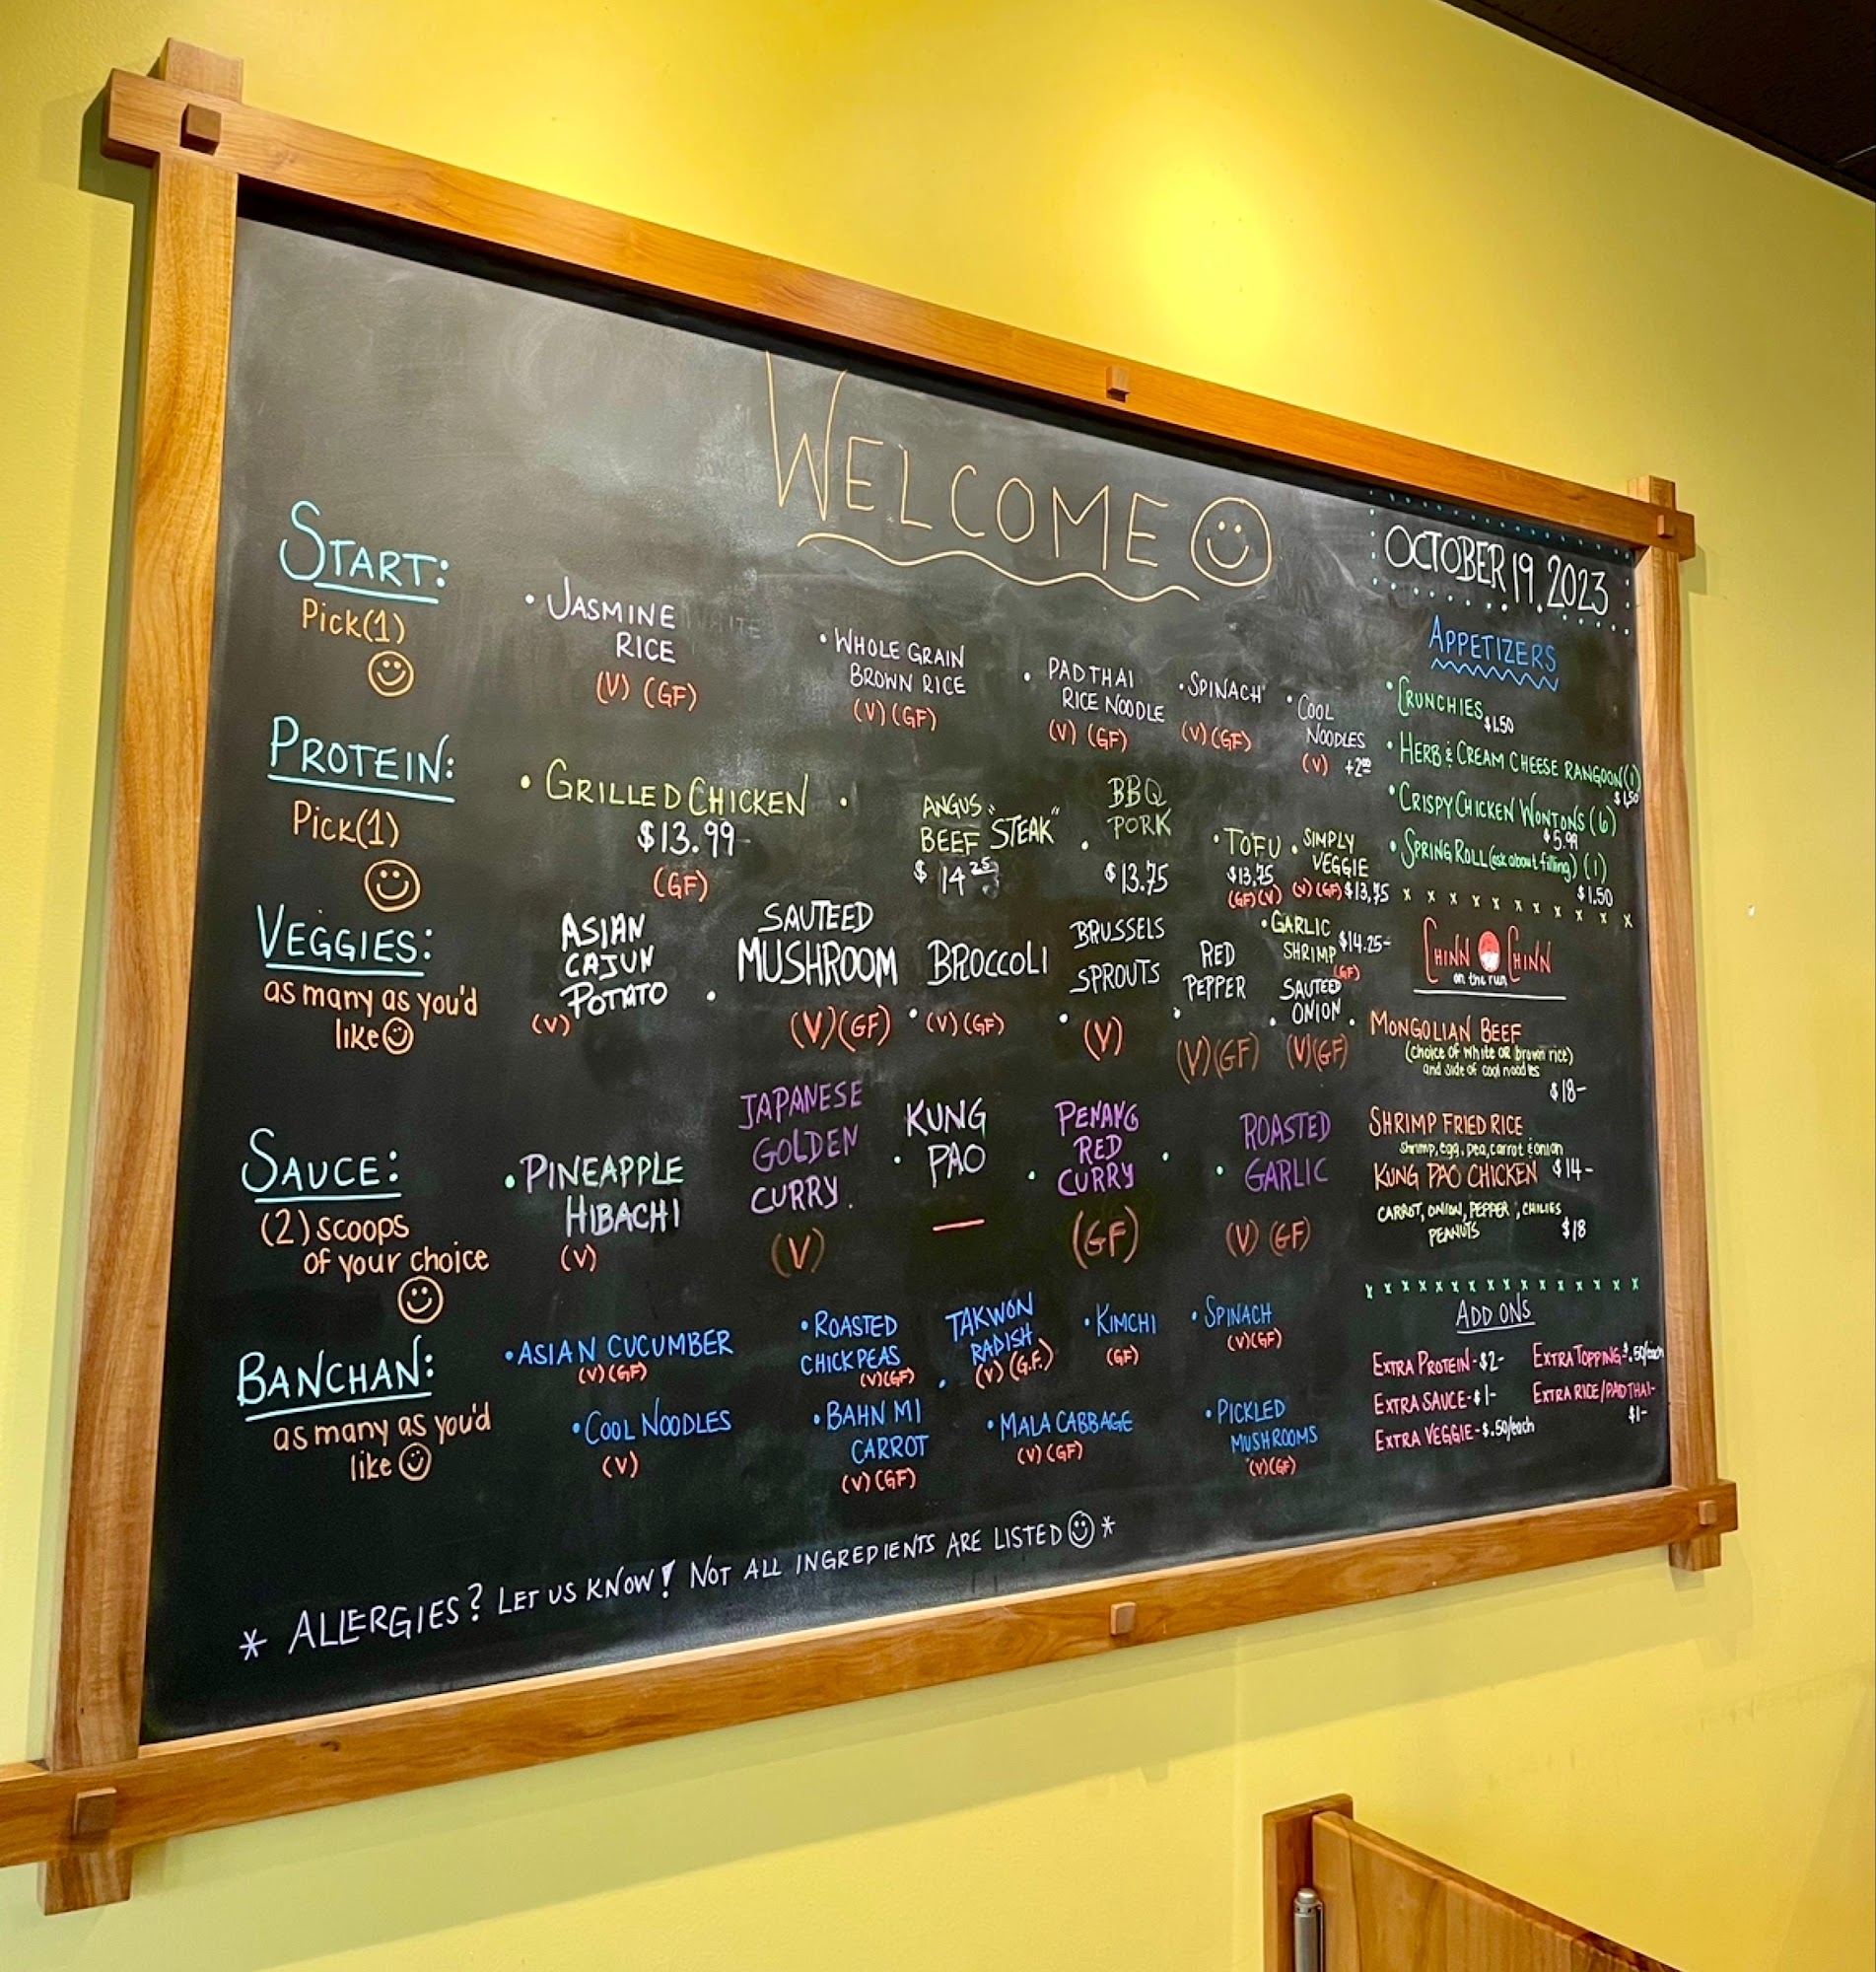 WELCOME
OCTOBER 19. 2023
START:
Pick(1)
• JASMINE
RICE
(V) (GF)
• WHOLE GRAIN
BROWN RICE
(V) (GF)
• PAD THAI
RICE NOODLE
(V) (GF)
• SPINACH
(V) (GF)
• COOL
NOODLES
(V) +2.00
PROTEIN:
Pick(1)
• GRILLED CHICKEN •
$13.99
(GF)
ANGUS
BEEF "STEAK" •
$14.25
BBQ
PORK
$13.75
• TOFU
$13.75
(GF)(V)
• SIMPLY
VEGGIE
(V)(GF) $13.75
• GARLIC
SHRIMP $14.25-
(GF)
VEGGIES:
as many as you'd
like
ASIAN
CAJUN
POTATO
(V)
• SAUTEED
MUSHROOM
(V)(GF)
BROCCOLI
• (V)(GF)
BRUSSELS
SPROUTS
• (V)
RED
PEPPER
• (V)(GF)
SAUTEED
• ONION •
(V)(GF)
SAUCE:
(2) scoops
of your choice
• PINEAPPLE
HIBACHI
(V)
JAPANESE
GOLDEN
CURRY.
(V)
KUNG
• PAO
—
PENANG
RED
• CURRY
(GF)
ROASTED
• GARLIC
(V) (GF)
BANCHAN:
as many as you'd
like
• ASIAN CUCUMBER
(V)(GF)
• ROASTED
CHICKPEAS
(V)(GF)
TAKWON
RADISH
• (V) (G.F.)
• KIMCHI
(GF)
• SPINACH
(V)(GF)
• COOL NOODLES
(V)
• BAHN MI
CARROT
(V)(GF)
• MALA CABBAGE
(V)(GF)
• PICKLED
MUSHROOMS
(V)(GF)
* ALLERGIES? LET US KNOW! NOT ALL INGREDIENTS ARE LISTED *
APPETIZERS
• CRUNCHIES
$1.50
• HERB & CREAM CHEESE RANGOON (1)
$1.50
• CRISPY CHICKEN WONTONS (6)
$5.99
• SPRING ROLL (ask about filling) (1)
$1.50
x x x x x x x x x x x
CHINN CHINN
on the run
MONGOLIAN BEEF
(choice of white OR brown rice)
and side of cool noodles
$18-
SHRIMP FRIED RICE
shrimp, egg, pea, carrot & onion
$14-
KUNG PAO CHICKEN
CARROT, ONION, PEPPER, CHILIES
PEANUTS
$18
x x x x x x x x x x x x x x x
ADD ONS
EXTRA PROTEIN-$2-
EXTRA TOPPING-$.50/each
EXTRA SAUCE-$1-
EXTRA RICE/PAD THAI-
$1-
EXTRA VEGGIE-$.50/each